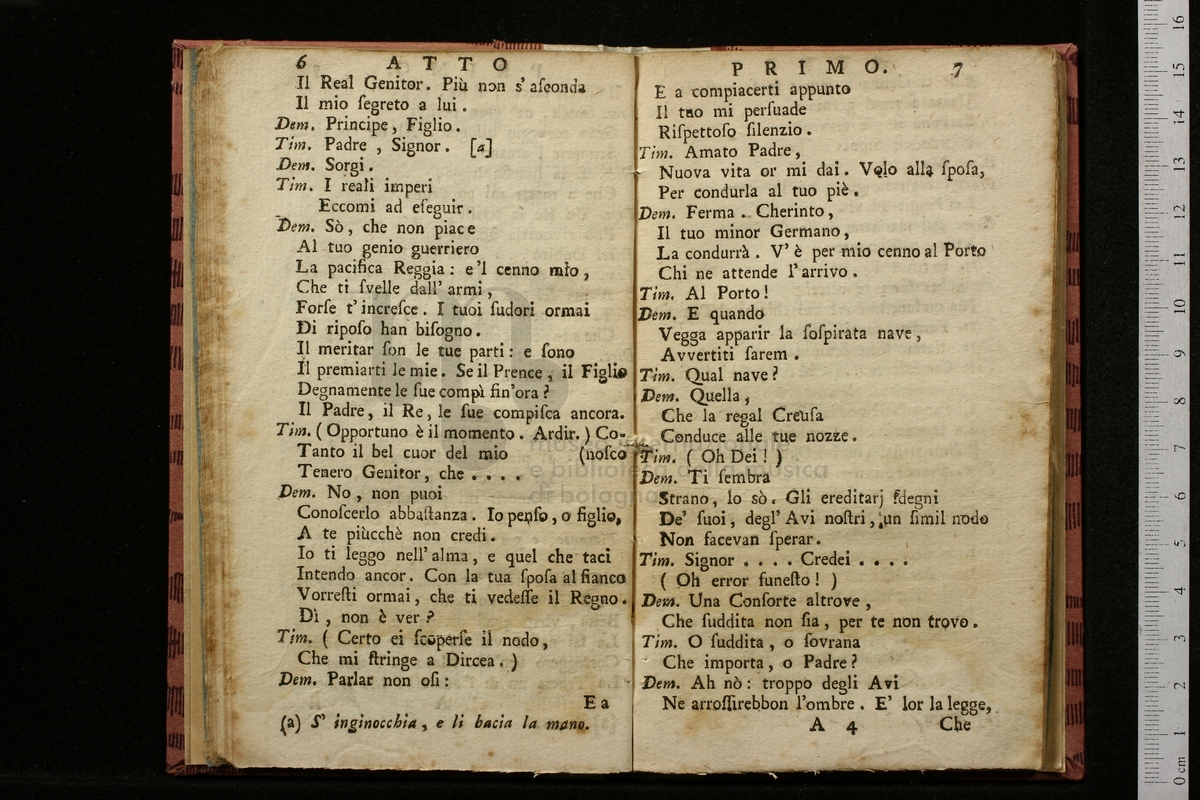 6 ATTO
Il Real Genitor. Più non s' aſconda
Il mio ſegreto a lui.
Dem. Principe, Figlio.
Tim. Padre, Signor. [a]
Dem. Sorgi.
Tim. I reali imperi
Eccomi ad eſeguir.
Dem. Sò, che non piace
Al tuo genio guerriero
La pacifica Reggia: e 'l cenno mio,
Che ti ſvelle dall' armi,
Forſe t' increſce. I tuoi ſudori ormai
Di ripoſo han biſogno.
Il meritar ſon le tue parti: e ſono
Il premiarti le mie. Se il Prence, il Figlio
Degnamente le ſue compì fin' ora?
Il Padre, il Re, le ſue compiſca ancora.
Tim. (Opportuno è il momento. Ardir.) Co-
Tanto il bel cuor del mio (noſco
Tenero Genitor, che ....
Dem. No, non puoi
Conoſcerlo abbaſtanza. Io penſo, o figlio,
A te piùcchè non credi.
Io ti leggo nell' alma, e quel che taci
Intendo ancor. Con la tua ſpoſa al fianco
Vorreſti ormai, che ti vedeſſe il Regno.
Dì, non è ver?
Tim. (Certo ei ſcoperſe il nodo,
Che mi ſtringe a Dircea.)
Dem. Parlar non oſi:
E a
(a) S' inginocchia, e li bacia la mano.
PRIMO. 7
E a compiacerti appunto
Il tuo mi perſuade
Riſpettoſo ſilenzio.
Tim. Amato Padre,
Nuova vita or mi dai. Volo alla ſpoſa,
Per condurla al tuo piè.
Dem. Ferma. Cherinto,
Il tuo minor Germano,
La condurrà. V' è per mio cenno al Porto
Chi ne attende l' arrivo.
Tim. Al Porto!
Dem. E quando
Vegga apparir la ſoſpirata nave,
Avvertiti ſarem.
Tim. Qual nave?
Dem. Quella,
Che la regal Creuſa
Conduce alle tue nozze.
Tim. (Oh Dei!)
Dem. Ti ſembra
Strano, lo sò. Gli ereditarj ſdegni
De' ſuoi, degl' Avi noſtri, un ſimil nodo
Non facevan ſperar.
Tim. Signor .... Credei ....
(Oh error funeſto!)
Dem. Una Conſorte altrove,
Che ſuddita non ſia, per te non trovo.
Tim. O ſuddita, o ſovrana
Che importa, o Padre?
Dem. Ah nò: troppo degli Avi
Ne arroſſirebbon l' ombre. E' lor la legge,
A 4 Che
museo internazionale
e biblioteca della musica
di bologna
0 cm 1 2 3 4 5 6 7 8 9 10 11 12 13 14 15 16